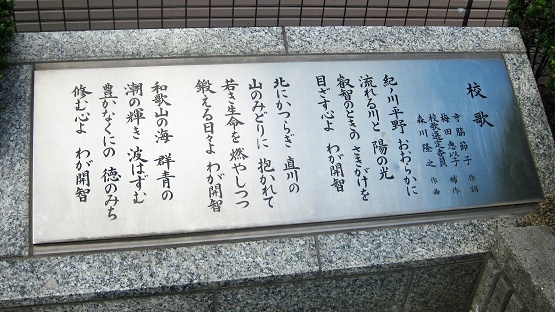 校歌
寺脇節子 作詞
梅田恵以子 補作
校歌選定委員
森川隆之 作曲
紀ノ川平野 おおらかに
流れる川と 陽の光
叡智のときの さきがけを
目ざす心よ わが開智
北にかつらぎ 直川の
山のみどりに 抱かれて
若き生命を 燃やしつつ
鍛える日々よ わが開智
和歌山の海 群青の
潮の輝き 波はずむ
豊かなくにの 徳のみち
修む心よ わが開智